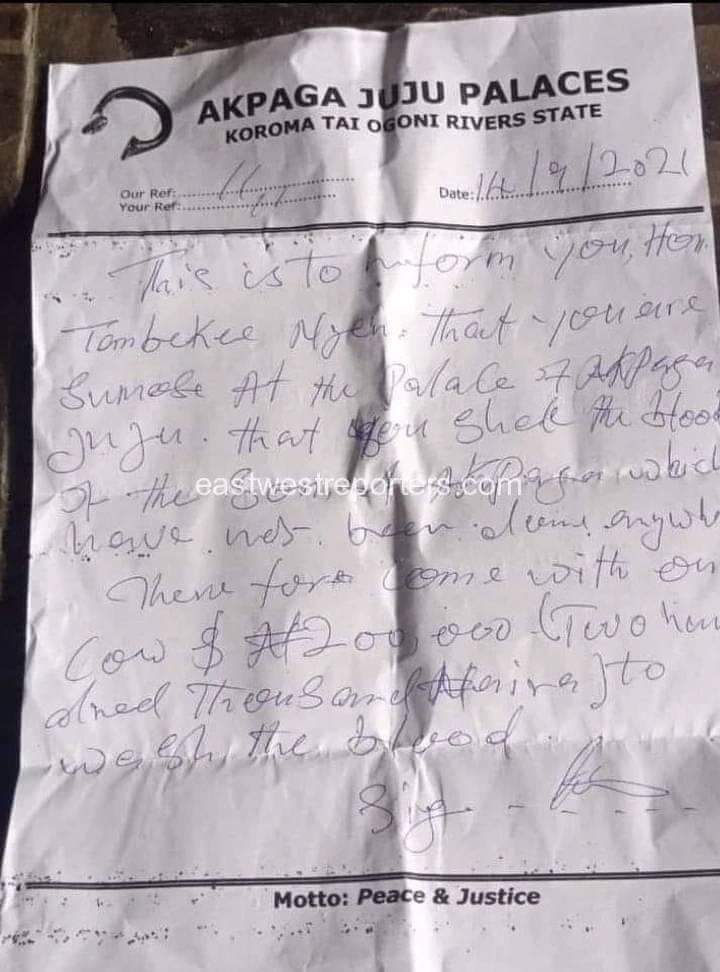 AKPAGA JUJU PALACES
KOROMA TAI OGONI RIVERS STATE
Our Ref:
Your Ref:
Date: 14/9/2021
This is to inform you, Hon.
Tombekee Nyeh. that you are
Sumose At the Palace of AKPaga
Juju. that you Shed the bloo
of the Son of AKPaga whic
have not been done anywh
There fore come with on
Cow $ ₦200,000 (Two hun
dred Thousand Naira) to
wash the blood.
Sig
Motto: Peace & Justice
eastwestreporters.com